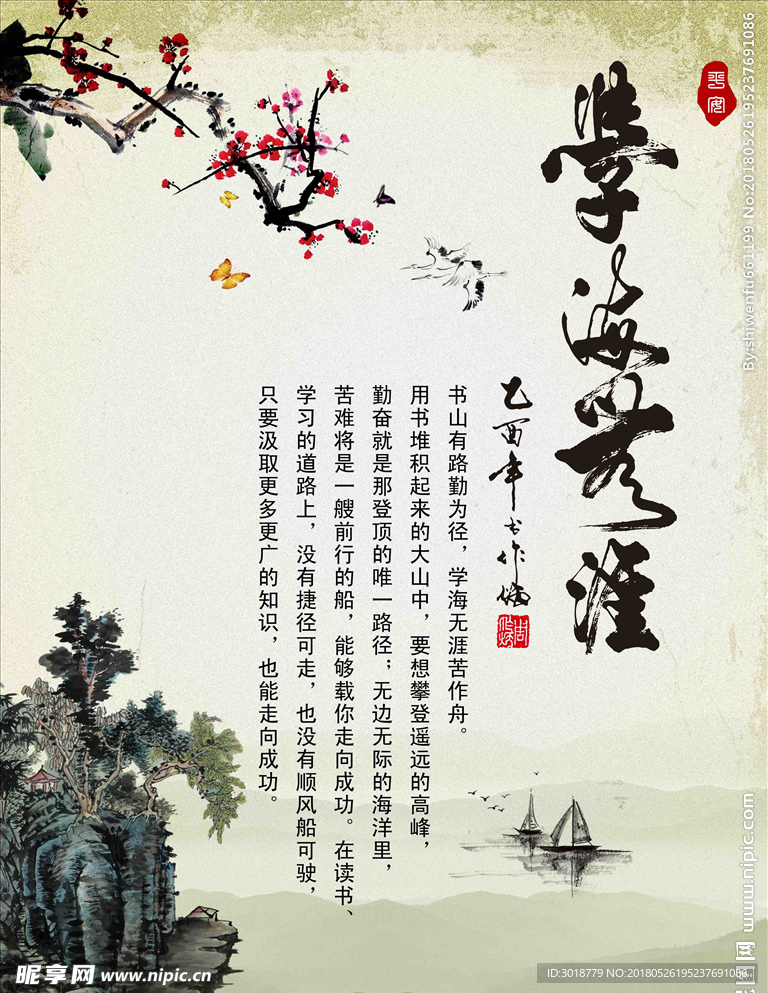 学海无涯
平安
乙酉年书作炳
书山有路勤为径，学海无涯苦作舟。
用书堆积起来的大山中，要想攀登遥远的高峰，
勤奋就是那登顶的唯一路径；无边无际的海洋里，
苦难将是一艘前行的船，能够载你走向成功。在读书、
学习的道路上，没有捷径可走，也没有顺风船可驶，
只要汲取更多更广的知识，也能走向成功。
By:shiwenfu661199 No:20180526195237691086
昵享网 www.nipic.cn
ID:3018779 NO:20180526195237691086
www.nipic.com